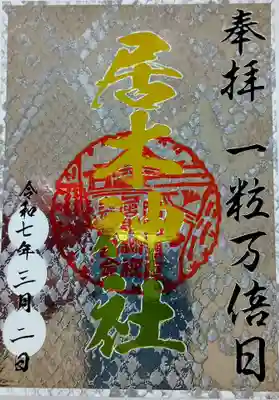 奉拝 一粒万倍日
居木神社
令和七年 三月 二日